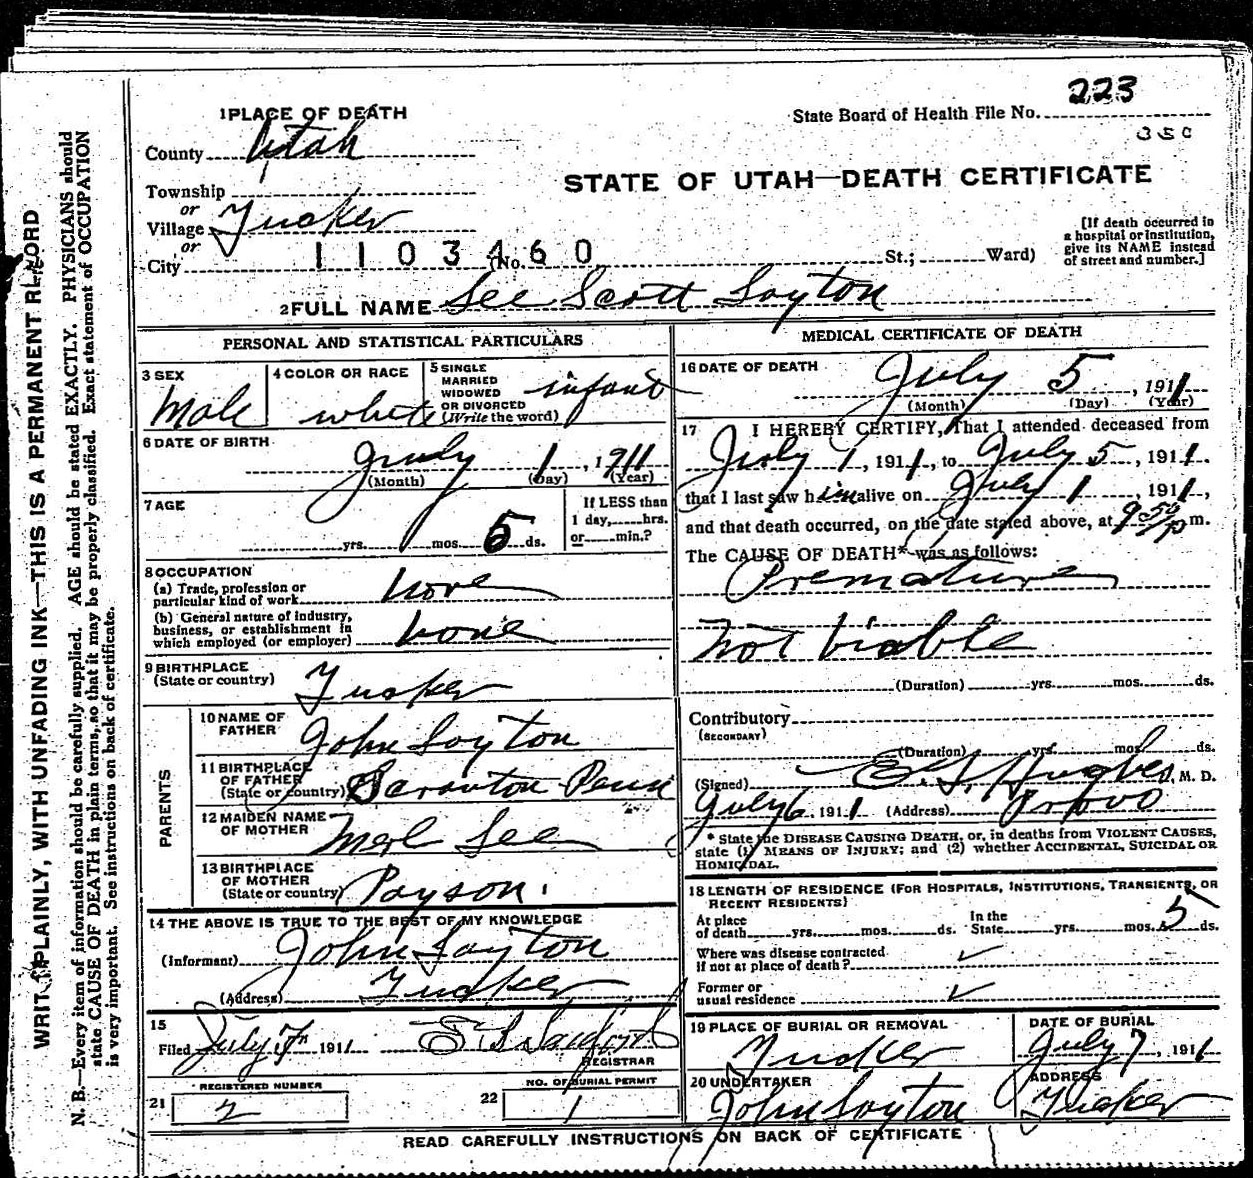 223
State Board of Health File No.
350
1 PLACE OF DEATH
County Utah
STATE OF UTAH—DEATH CERTIFICATE
Township
or
Village Tucker
or
City 1103460 (No. St.; Ward)
[If death occurred in
a hospital or institution,
give its NAME instead
of street and number.]
2 FULL NAME Lee Scott Layton
PERSONAL AND STATISTICAL PARTICULARS
3 SEX
Male
4 COLOR OR RACE
white
5 SINGLE
MARRIED
WIDOWED
OR DIVORCED
(Write the word)
infant
6 DATE OF BIRTH
July 1, 1911
(Month) (Day) (Year)
7 AGE
yrs. mos. 5 ds.
If LESS than
1 day, hrs.
or min.?
8 OCCUPATION
(a) Trade, profession or
particular kind of work none
(b) General nature of industry,
business, or establishment in
which employed (or employer) none
9 BIRTHPLACE
(State or country) Tucker
PARENTS
10 NAME OF
FATHER John Layton
11 BIRTHPLACE
OF FATHER
(State or country) Scranton Penn
12 MAIDEN NAME
OF MOTHER Merl Lee
13 BIRTHPLACE
OF MOTHER
(State or country) Payson
14 THE ABOVE IS TRUE TO THE BEST OF MY KNOWLEDGE
(Informant) John Layton
(Address) Tucker
15
Filed July 7, 1911
REGISTRAR
REGISTERED NUMBER
21 2
NO. OF BURIAL PERMIT
22 1
MEDICAL CERTIFICATE OF DEATH
16 DATE OF DEATH
July 5, 1911
(Month) (Day) (Year)
17 I HEREBY CERTIFY, That I attended deceased from
July 1, 1911, to July 5, 1911.
that I last saw him alive on July 1, 1911,
and that death occurred, on the date stated above, at 9 50/P m.
The CAUSE OF DEATH* was as follows:
Premature
Not viable
(Duration) yrs. mos. ds.
Contributory
(SECONDARY)
(Duration) yrs. mos. ds.
(Signed) E. G. Hughes, M. D.
July 6 1911 (Address) Provo
* State the DISEASE CAUSING DEATH, or, in deaths from VIOLENT CAUSES,
state (1) MEANS OF INJURY; and (2) whether ACCIDENTAL, SUICIDAL OR
HOMICIDAL.
18 LENGTH OF RESIDENCE (FOR HOSPITALS, INSTITUTIONS, TRANSIENTS, OR
RECENT RESIDENTS)
At place
of death yrs. mos. ds.
In the
State yrs. mos. 5 ds.
Where was disease contracted
if not at place of death?
Former or
usual residence
19 PLACE OF BURIAL OR REMOVAL
Tucker
DATE OF BURIAL
July 7, 1911
20 UNDERTAKER
John Layton
ADDRESS
Tucker
READ CAREFULLY INSTRUCTIONS ON BACK OF CERTIFICATE
WRITE PLAINLY, WITH UNFADING INK—THIS IS A PERMANENT RECORD
N. B.—Every item of information should be carefully supplied. AGE should be stated EXACTLY. PHYSICIANS should
state CAUSE OF DEATH in plain terms, so that it may be properly classified. Exact statement of OCCUPATION
is very important. See instructions on back of certificate.